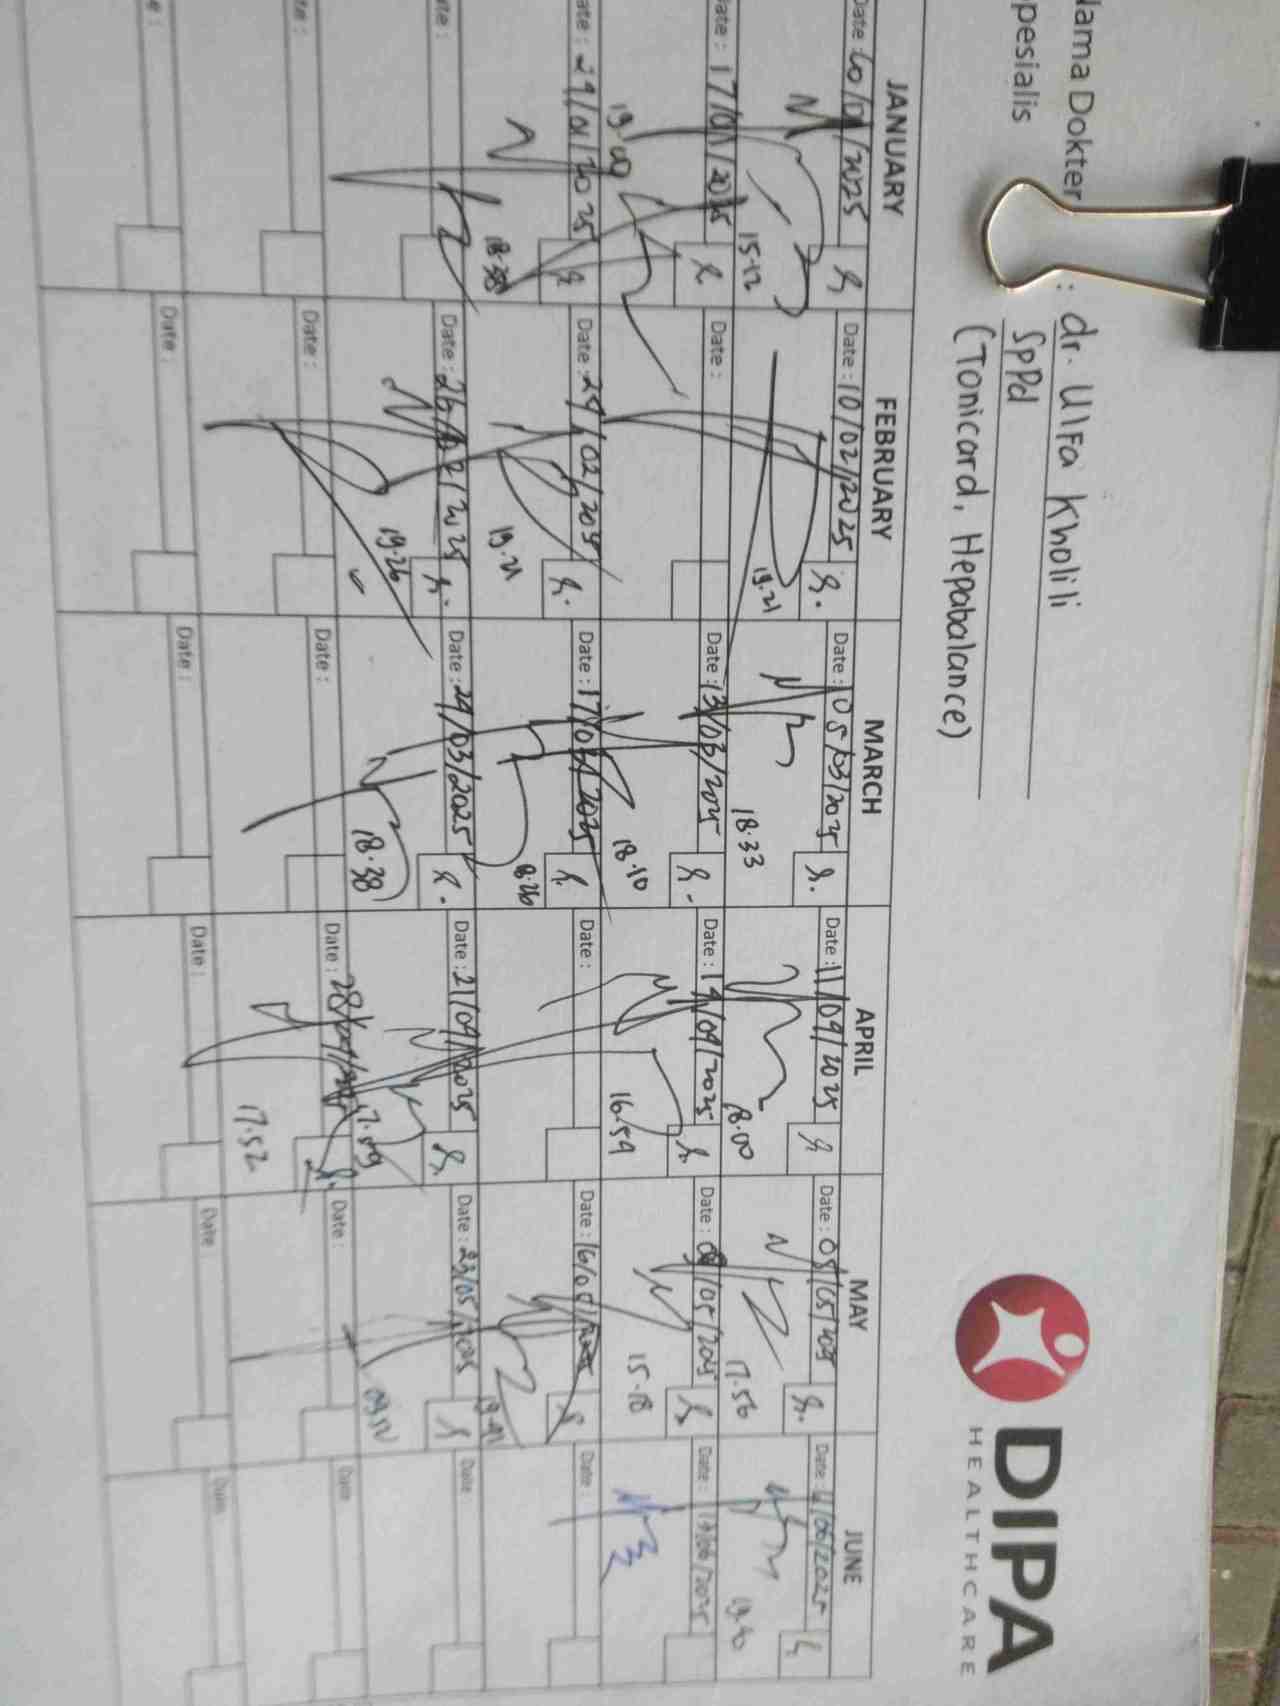 Nama Dokter : dr. Ulfa Kholili
Spesialis SpPd
(Tonicard, Hepabalance)
DIPA
HEALTHCARE
JANUARY FEBRUARY MARCH APRIL MAY JUNE
Date: /2025 Date: 10/02/2025 Date: 05/03/2025 Date: 11/04/2025 Date: 05/05/2025 Date: /06/2025
15.12 19.21 18.33 18.00 17.56 19.40
Date: 17/01/2025 Date: Date: 13/03/2025 Date: 14/04/2025 Date: /05/2025 Date: /06/2025
19.00 18.10 16.59 15.18
Date: 24/01/2025 Date: 24/02/2025 Date: 17/03/2025 Date: Date: 16/05/2025 Date:
18.38 19.21 18.26
Date: Date: 26/02/2025 Date: 24/03/2025 Date: 21/04/2025 Date: 23/05/2025 Date:
19.26 18.38 17.09
Date: Date: Date: Date: 28/04/ Date: Date
17.52
Date: Date: Date: Date: Date Date